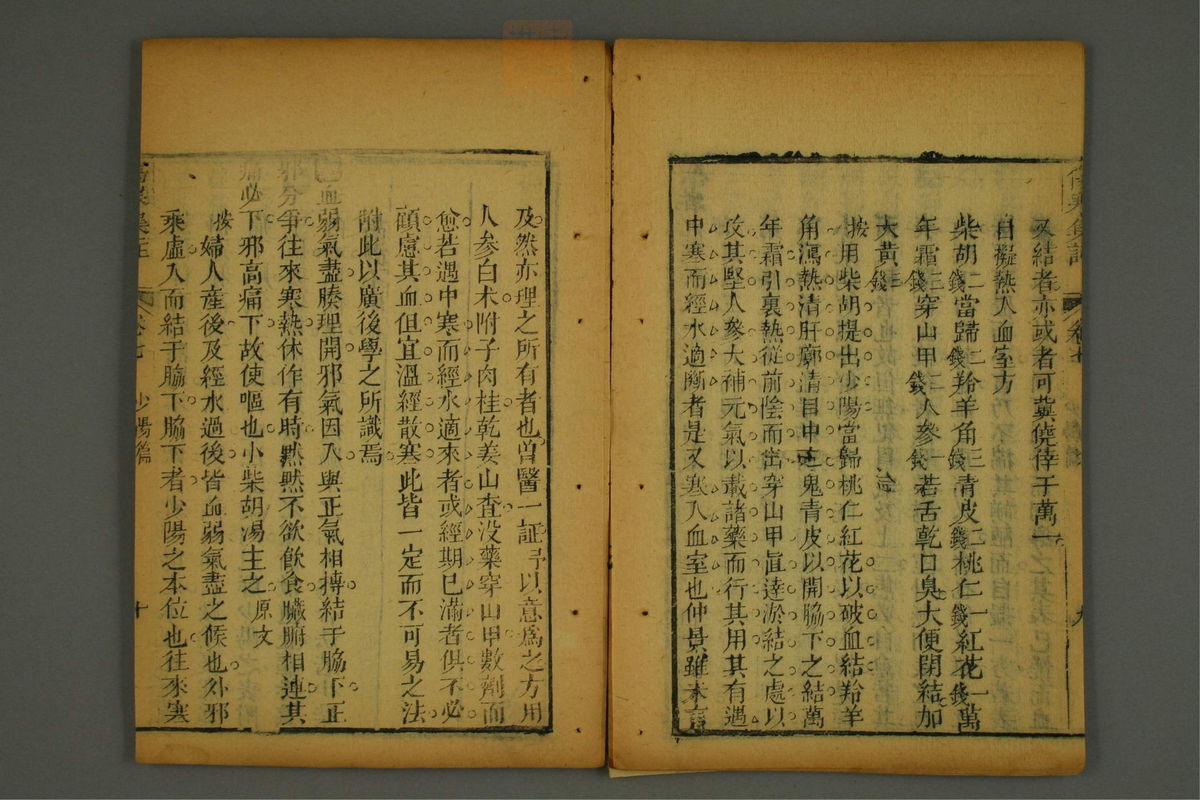 又結者亦或者可冀僥倖于萬一
自擬熱入血室方
柴胡二錢當歸二錢羚羊角三錢青皮二錢桃仁一錢紅花一錢萬
年霜三錢穿山甲二錢人參一錢若舌乾口臭大便閉結加
大黃三錢
按用柴胡提出少陽當歸桃仁紅花以破血結羚羊
角瀉熱清肝廓清目中之鬼青皮以開脇下之結萬
年霜引裏熱從前陰而出穿山甲直達淤結之處以
攻其堅人參大補元氣以載諸藥而行其用其有遇
中寒而經水適斷者是又寒入血室也仲景雖未言
卷七
九
及然亦理之所有者也曾醫一証予以意爲之方用
人參白术附子肉桂乾姜山查没藥穿山甲數劑而
愈若遇中寒而經水適來者或經期已滿者俱不必
顧慮其血但宜溫經散寒此皆一定而不可易之法
附此以廣後學之所識焉
血弱氣盡腠理開邪氣因入與正氣相搏結于脇下正
邪分爭往來寒熱休作有時默默不欲飲食臟腑相連其
痛必下邪高痛下故使嘔也小柴胡湯主之原文
按婦人產後及經水過後皆血弱氣盡之候也外邪
乘虛入而結于脇下脇下者少陽之本位也往來寒
少陽篇
十